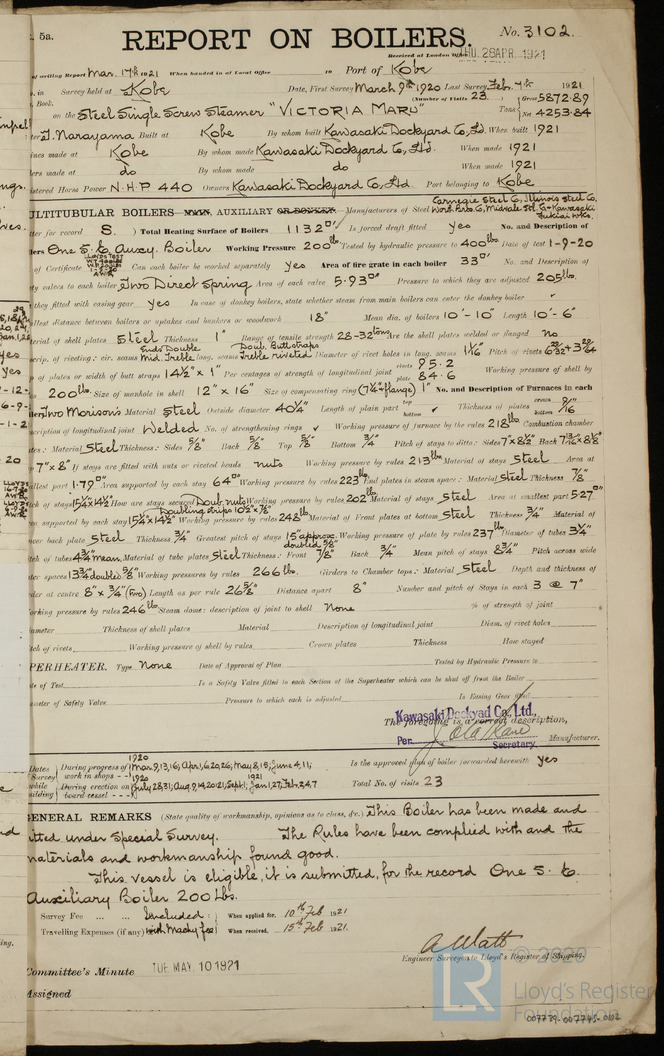 5a.
REPORT ON BOILERS.
No. 3102.
Received at London Office THU. 28 APR. 1921
of writing Report Mar. 17th 1921 When handed in at Local Office 10 Port of Kobe
in Survey held at Kobe Date, First Survey March 9th 1920 Last Survey Feb. 7th 1921
Book.
(Number of Visits 23
on the Steel Single Screw Steamer "VICTORIA MARU" Tons Gross 5872.89 Net 4253.84
ter J. Narayama Built at Kobe By whom built Kawasaki Dockyard Co, Ld. When built 1921
ines made at Kobe By whom made Kawasaki Dockyard Co, Ltd. When made 1921
ers made at do By whom made do When made 1921
istered Horse Power N.H.P 440 Owners Kawasaki Dockyard Co, Ltd Port belonging to Kobe
ULTITUBULAR BOILERS MAIN, AUXILIARY OR DONKEY. Manufacturers of Steel Carnegie Steel Co, Illinois Steel Co, Midvale Stl Co Kawasaki Fukiai Wks.
ter for record S. Total Heating Surface of Boilers 1132 Is forced draft fitted yes No. and Description of
lers One S.E. Auxy. Boiler Working Pressure 200 lb Tested by hydraulic pressure to 400 lbs Date of test 1-9-20
of Certificate LLOYDS TEST Can each boiler be worked separately yes Area of fire grate in each boiler 33 No. and Description of
ty valves to each boiler Two Direct Spring Area of each valve 5.93 Pressure to which they are adjusted 205 lbs.
they fitted with easing gear yes In case of donkey boilers, state whether steam from main boilers can enter the donkey boiler
llest distance between boilers or uptakes and bunkers or woodwork 18" Mean dia. of boilers 10'-10" Length 10'-6"
terial of shell plates Steel Thickness 1" Range of tensile strength 28-32 tons Are the shell plates welded or flanged no
scrip. of riveting: cir. seams Ends Double Mid. Treble long. seams Doub. Buttstraps Treble riveted Diameter of rivet holes in long. seams 1 1/16 Pitch of rivets
p of plates or width of butt straps 14 1/2" x 1" Per centages of strength of longitudinal joint rivets 95.2 plate 84.6 Working pressure of shell by
200 lbs. Size of manhole in shell 12" x 16" Size of compensating ring (7 1/4" flange) 1" No. and Description of Furnaces in each
iler Two Morison's Material Steel Outside diameter 40 1/4" Length of plain part top bottom Thickness of plates crown bottom 9/16"
escription of longitudinal joint Welded No. of strengthening rings Working pressure of furnace by the rules 218 lbs Combustion chamber
tes: Material Steel Thickness: Sides 5/8" Back 5/8" Top 5/8" Bottom 3/4" Pitch of stays to ditto: Sides 7" x 8 1/2" Back
7" x 8" If stays are fitted with nuts or riveted heads nuts Working pressure by rules 213 lbs Material of stays Steel Area at
llest part 1.79 Area supported by each stay 64 Working pressure by rules 223 lbs End plates in steam space: Material Steel Thickness 7/8"
itch of stays 15 1/4 x 14 1/2" How are stays secured Doub. nuts Working pressure by rules 202 lbs Material of stays Steel Area at smallest part 5.27
Doubling strips 10 1/2 x 7/8"
ea supported by each stay 15 1/4 x 14 1/2" Working pressure by rules 248 lb Material of Front plates at bottom Steel Thickness 3/4" Material of
wer back plate Steel Thickness 3/4" Greatest pitch of stays 15" approx. doubled 5/8" Working pressure of plate by rules 237 lbs Diameter of tubes 3 1/4"
itch of tubes 4 3/4" mean. Material of tube plates Steel Thickness: Front 7/8" Back 3/4" Mean pitch of stays 8 3/4" Pitch across wide
ter spaces 13 3/4" doubled 5/8" Working pressures by rules 266 lbs. Girders to Chamber tops: Material Steel Depth and thickness of
rder at centre 8" x 3/4" (two) Length as per rule 26 5/8" Distance apart 8" Number and pitch of Stays in each 3 @ 7"
orking pressure by rules 246 lbs Steam dome: description of joint to shell None % of strength of joint
iameter Thickness of shell plates Material Description of longitudinal joint Diam. of rivet holes
tch of rivets Working pressure of shell by rules Crown plates Thickness How stayed
PERHEATER. Type None Date of Approval of Plan Tested by Hydraulic Pressure to
te of Test Is a Safety Valve fitted to each Section of the Superheater which can be shut off from the Boiler
iameter of Safety Valve Pressure to which each is adjusted Is Easing Gear fitted
Kawasaki Dockyard Co., Ltd.,
The foregoing is a correct description,
Per. Secretary. Manufacturer.
Dates of Survey while building
During progress of work in shops 1920 Mar. 9, 13, 16, Apr. 1, 6, 20, 26, May 8, 15, June 4, 11,
During erection on board vessel 1920 July 28, 31, Aug. 9, 14, 20, 21, Sept. 1, 1921 Jan. 1, 27, Feb. 3, 4, 7
Is the approved plan of boiler forwarded herewith yes
Total No. of visits 23
GENERAL REMARKS (State quality of workmanship, opinions as to class, &c.) This Boiler has been made and
itted under Special Survey. The Rules have been complied with and the
materials and workmanship found good.
This vessel is eligible, it is submitted, for the record One S. E.
Auxiliary Boiler 200 lbs.
Survey Fee Included When applied for, 10th Feb 1921
Travelling Expenses (if any) with Machy fee When received, 15th Feb 1921.
A Watt
Engineer Surveyor to Lloyd's Register of Shipping.
Committee's Minute TUE. MAY 10 1921
Assigned
© 2020
LR
Lloyd's Register
Foundation
007739-007745-0102